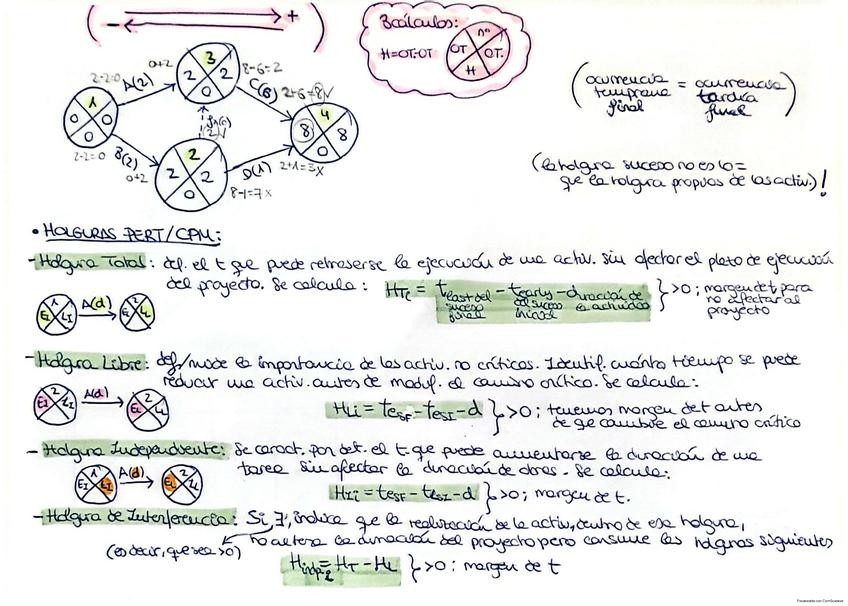 ( - +)
3 cálculos:
H=OT-OT
nº
OT
OT
H
(ocurrencia temprana final = ocurrencia tardía final)
(la holgura suceso no es lo =
que la holgura propias de las activ.)!
2-2=0
A(2)
0+2
3
2
2
0
8-6=2
C(6)
2+6=8✓
1
0
0
0
2-2=0
B(2)
0+2
2
2
2
0
8-1=7x
D(1)
2+1=3x
4
8
8
• HOLGURAS PERT/CPM:
- Holgura Total: def. el t que puede retrasarse la ejecución de una activ. sin afectar el plazo de ejecución
del proyecto. Se calcula: HTi = tlast del suceso final - tearly del suceso inicial - duración de la actividad } >0; margen de t para
no afectar al
proyecto
1
EI
LI
A(d)
2
EL
LL
- Holgura Libre: def/mide la importancia de las activ. no críticas. Identif. cuánto tiempo se puede
reducir una activ. antes de modif. el camino crítico. Se calcula:
EI
2
LI
A(d)
EL
2
LL
HLi = tESF - tESI - d } >0; tenemos margen de t antes
de que cambie el camino crítico
- Holgura Independiente: Se caract. por det. el t que puede aumentarse la duración de una
tarea sin afectar la duración de otras. Se calcula:
EI
1
LI
A(d)
EL
2
LL
HIi = tESF - tLSI - d } >0; margen de t.
- Holgura de Interferencia: Si ∃, indica que la realización de la activ, dentro de esa holgura,
(es decir, que sea >0) no altera la duración del proyecto pero consume las holguras siguientes
= HT - HL } >0: margen de t
Escaneado con CamScanner